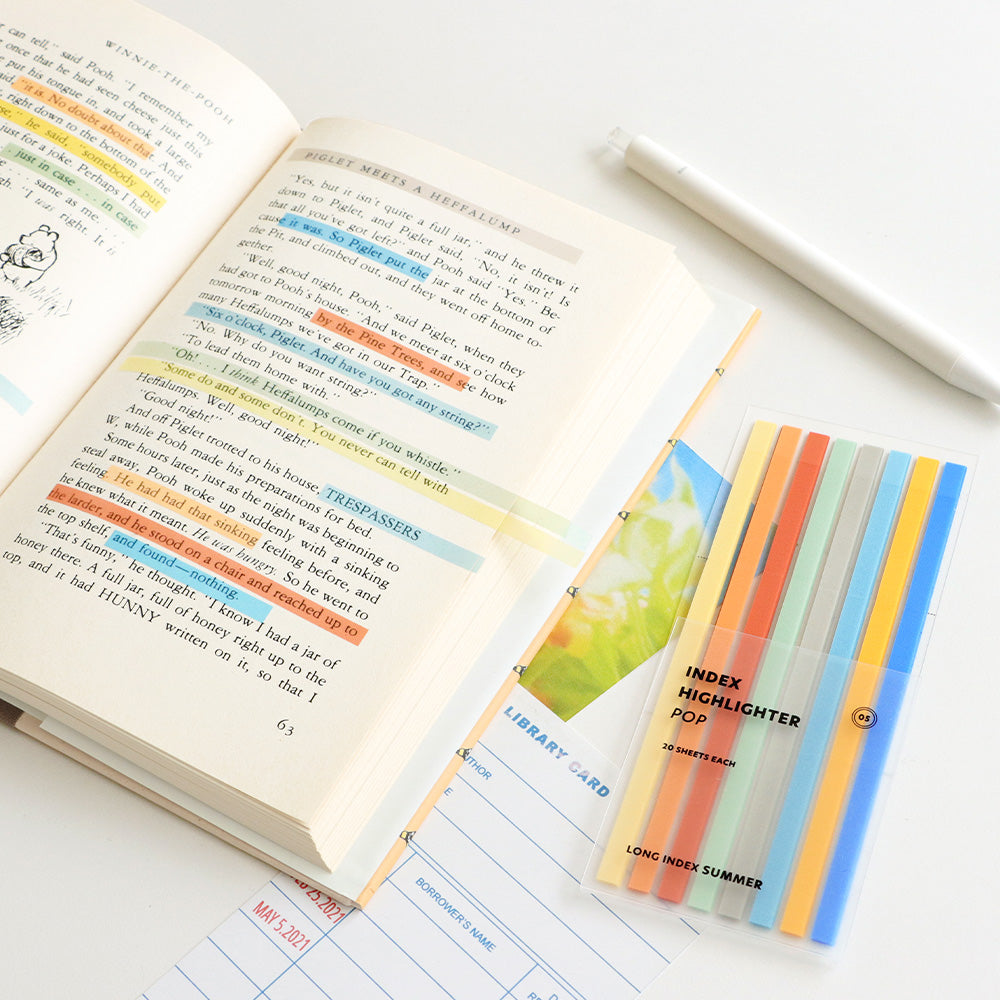 WINNIE-THE-POOH
can tell," said Pooh. "I remember my
once that he had seen cheese just this
put his tongue in, and took a large
"it is. No doubt about that. And
right down to the bottom of the
he said, "somebody put
just for a joke. Perhaps I had
. just in case . . . in case
. . . same as me.
"I was right. It is
PIGLET MEETS A HEFFALUMP
"Yes, but it isn't quite a full jar," and he threw it
down to Piglet, and Piglet said, "No, it isn't! Is
that all you've got left?" and Pooh said "Yes." Be-
cause it was. So Piglet put the jar at the bottom of
the Pit, and climbed out, and they went off home to-
gether.
"Well, good night, Pooh," said Piglet, when they
had got to Pooh's house. "And we meet at six o'clock
tomorrow morning by the Pine Trees, and see how
many Heffalumps we've got in our Trap."
"Six o'clock, Piglet. And have you got any string?"
"No. Why do you want string?"
"To lead them home with."
"Oh! . . . I think Heffalumps come if you whistle."
"Some do and some don't. You never can tell with
Heffalumps. Well, good night!"
"Good night!"
And off Piglet trotted to his house TRESPASSERS
W, while Pooh made his preparations for bed.
Some hours later, just as the night was beginning to
steal away, Pooh woke up suddenly with a sinking
feeling. He had had that sinking feeling before, and
he knew what it meant. He was hungry. So he went to
the larder, and he stood on a chair and reached up to
the top shelf, and found—nothing.
"That's funny," he thought. "I know I had a jar of
honey there. A full jar, full of honey right up to the
top, and it had HUNNY written on it, so that I
63
INDEX
HIGHLIGHTER
POP
05
20 SHEETS EACH
LONG INDEX SUMMER
LIBRARY CARD
BORROWER'S NAME
25.2021
MAY 5.2021